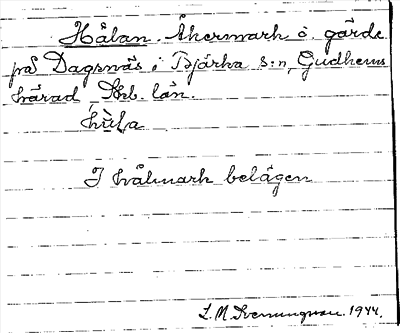 Hålan. Åkermark o. gärde
på Dagsnäs i Bjärka s:n, Gudhems
härad Skb. län.
I hålmark belägen
S. M. Svenningsson. 1944.